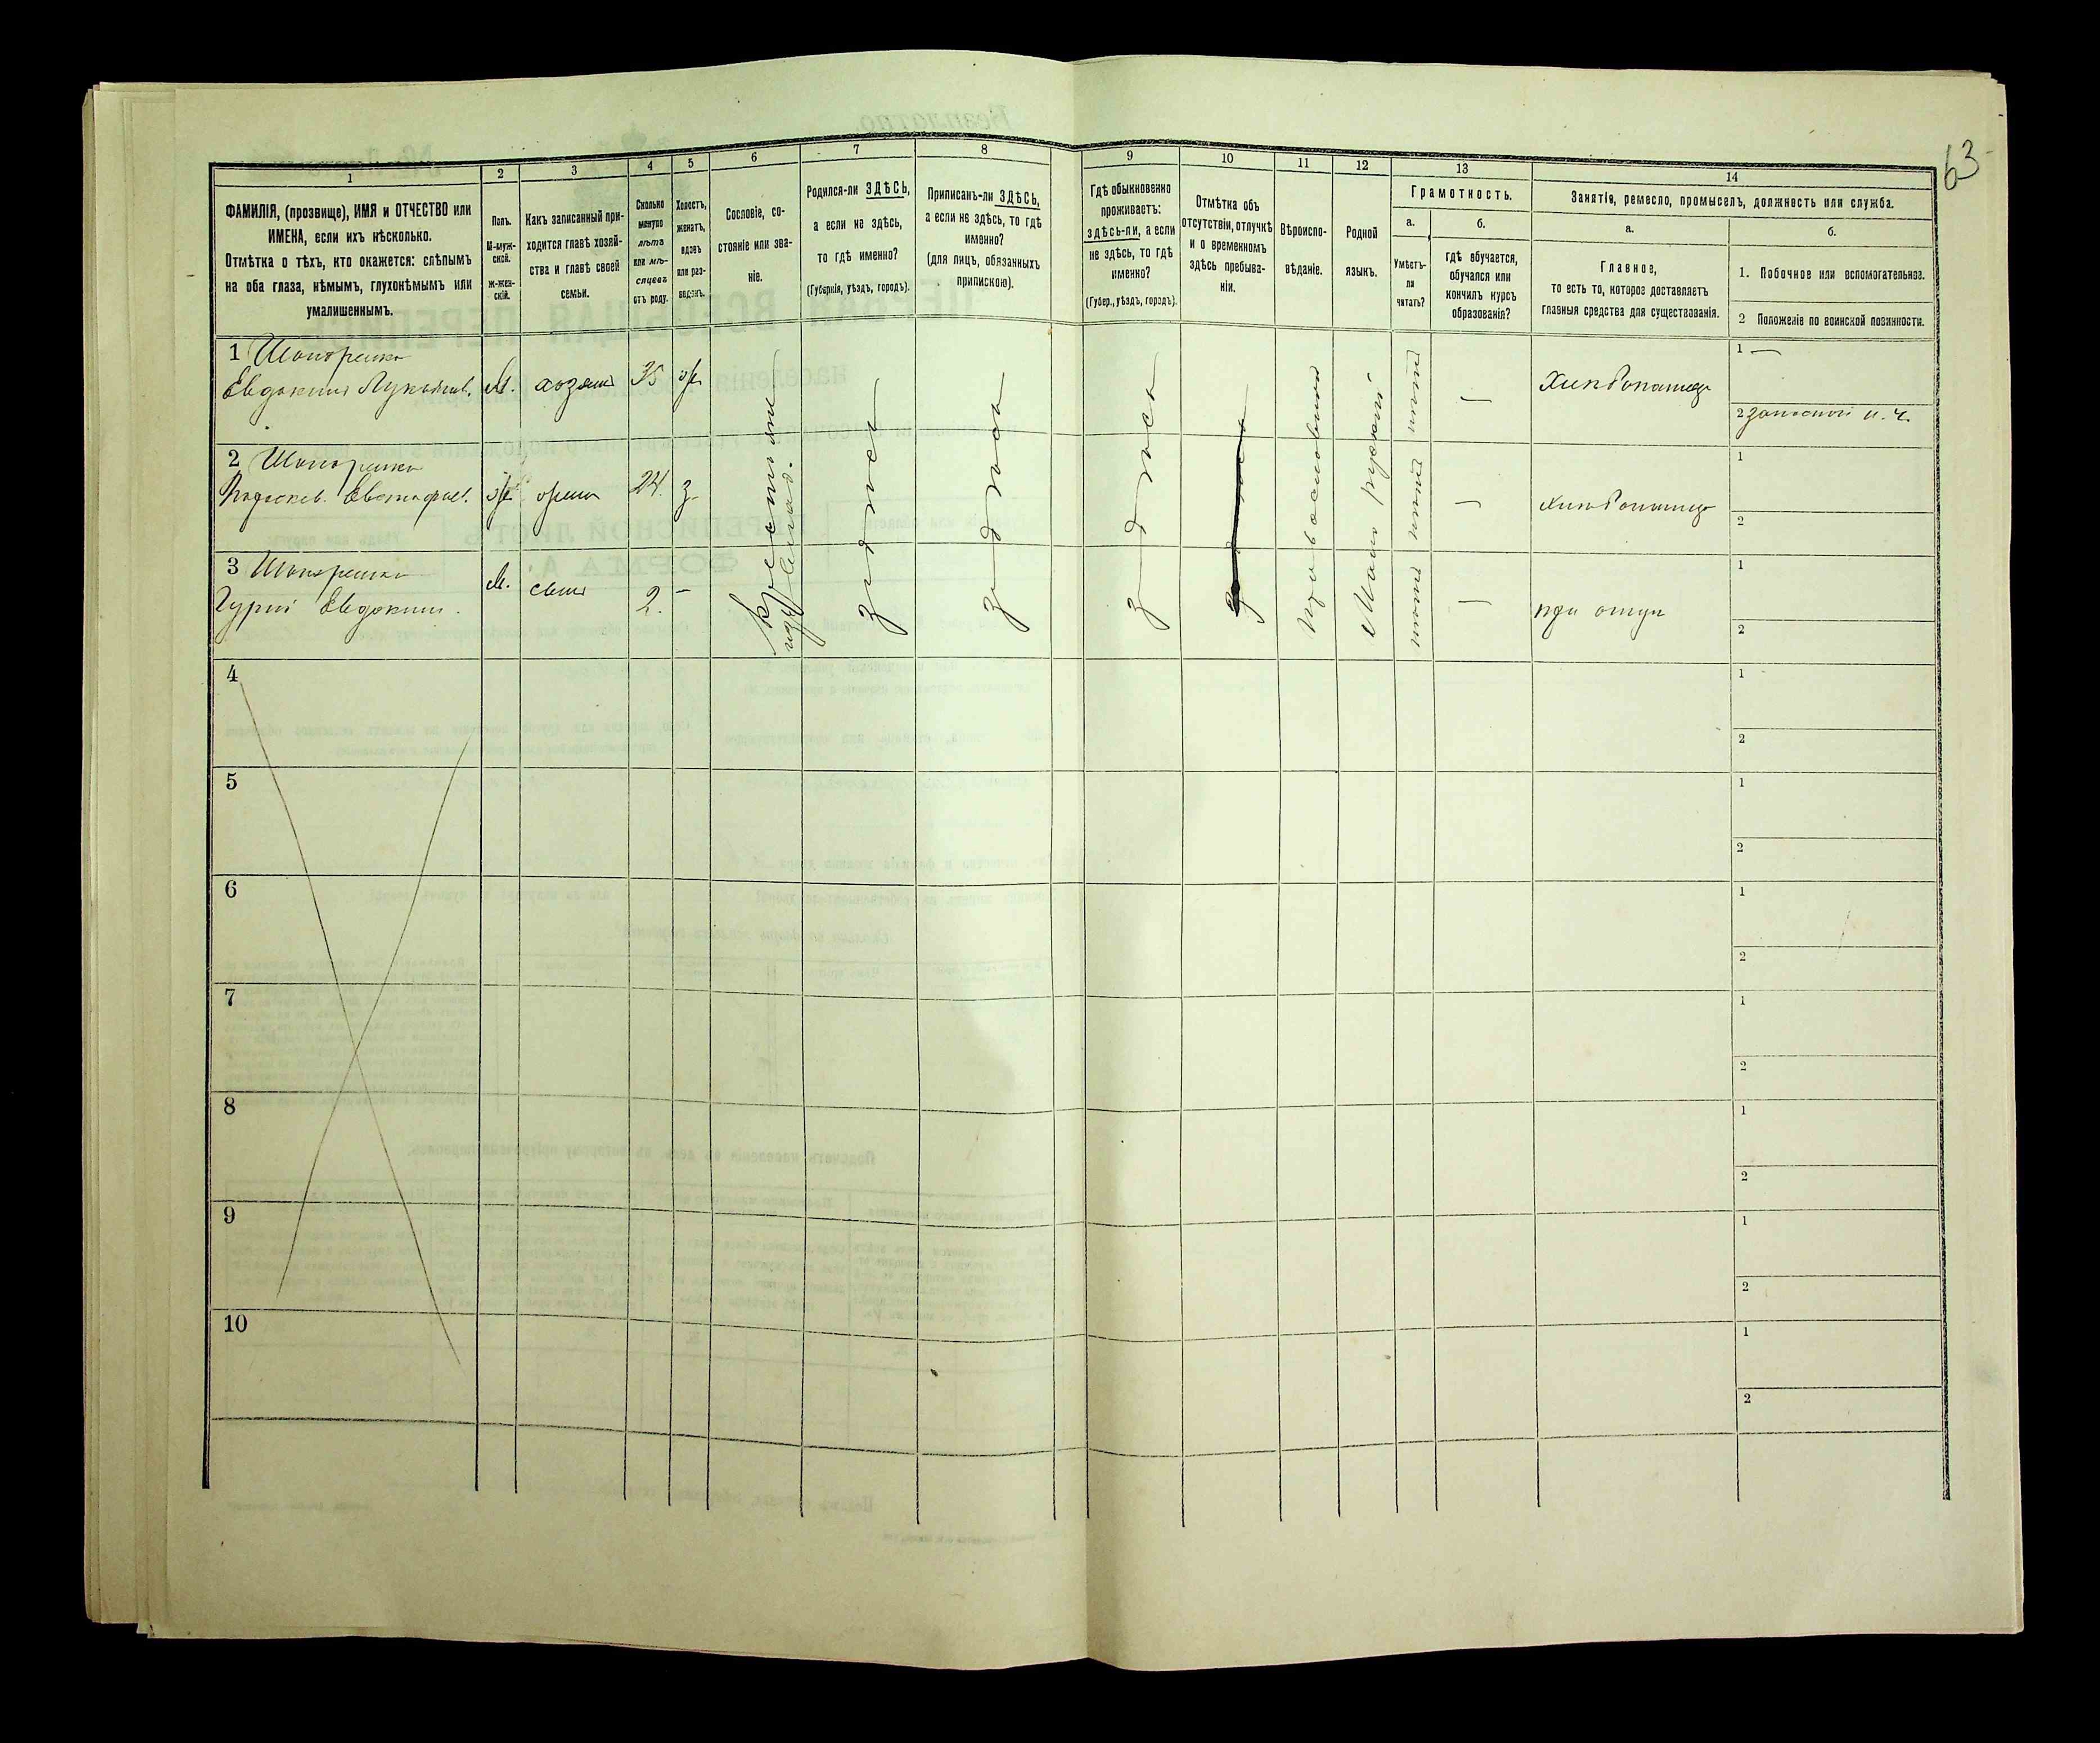 63
1
2
3
4
5
6
7
8
9
10
11
12
13
14
ФАМИЛІЯ, (прозвище), ИМЯ и ОТЧЕСТВО или
ИМЕНА, если ихъ нѣсколько.
Отмѣтка о тѣхъ, кто окажется: слѣпымъ
на оба глаза, нѣмымъ, глухонѣмымъ или
умалишеннымъ.
Полъ.
М-муж-
ской.
Ж-жен-
скій.
Какъ записанный при-
ходится главѣ хозяй-
ства и главѣ своей
семьи.
Сколько
минуло
лѣтъ
или мѣ-
сяцевъ
отъ роду.
Холостъ,
женатъ,
вдовъ
или раз-
веденъ.
Сословіе, со-
стояніе или зва-
ніе.
Родился-ли ЗДѢСЬ,
а если не здѣсь,
то гдѣ именно?
(Губернія, уѣздъ, городъ).
Приписанъ-ли ЗДѢСЬ,
а если не здѣсь, то гдѣ
именно?
(для лицъ, обязанныхъ
припискою).
Гдѣ обыкновенно
проживаетъ:
здѣсь-ли, а если
не здѣсь, то гдѣ
именно?
(Губер., уѣздъ, городъ).
Отмѣтка объ
отсутствіи, отлучкѣ
и о временномъ
здѣсь пребыва-
ніи.
Вѣроиспо-
вѣданіе.
Родной
языкъ.
Грамотность.
а.
Умѣетъ-
ли
читать?
б.
гдѣ обучается,
обучался или
кончилъ курсъ
образованія?
Занятіе, ремесло, промыселъ, должность или служба.
а.
Главное,
то есть то, которое доставляетъ
главныя средства для существованія.
б.
1. Побочное или вспомогательное.
2 Положеніе по воинской повинности.
1
Евдокимъ Лукьянов. М. хозяинъ 35 ж — Хлѣбопашецъ 1 —
2 запасной н. ч.
2
ж 24. з — Хлѣбопашец 1
2
3
Гурій Евдоким. М. сынъ 2. – — при отцѣ 1
2
здѣсь
здѣсь
здѣсь
Православный
Мало русскій
4 1
2
5 1
2
6 1
2
7 1
2
8 1
2
9 1
2
10 1
2